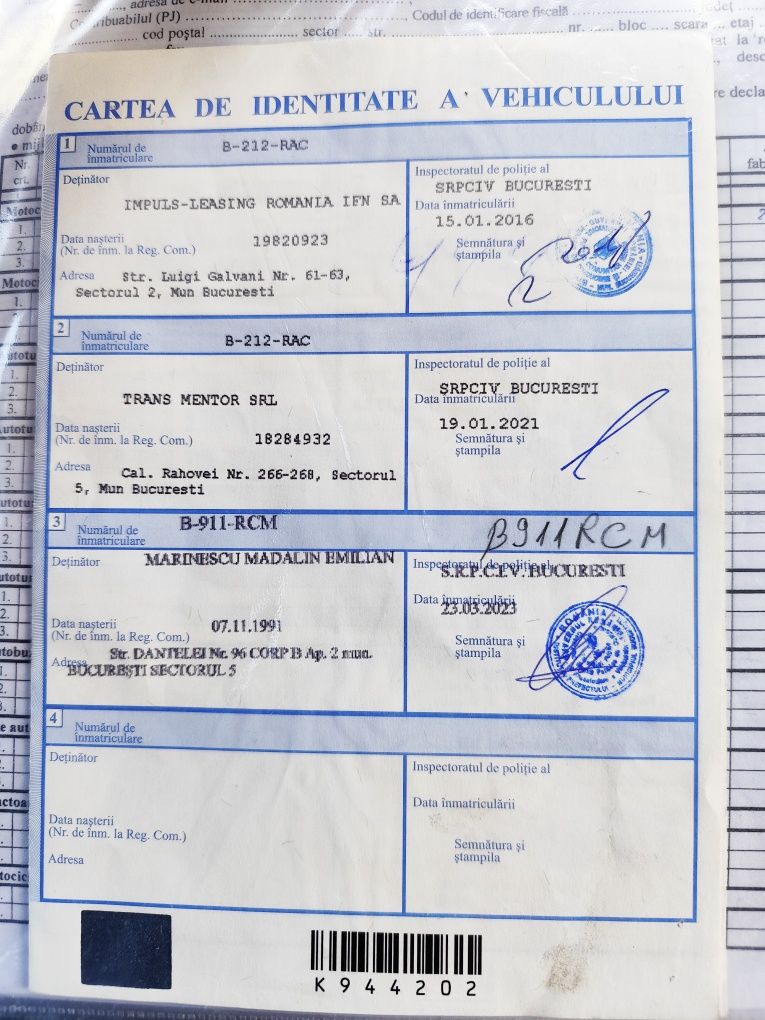 adresa de e-mail
Contribuabilul (PJ) , Codul de identificare fiscală județ
cod poștal sector str. nr. bloc scara etaj
CARTEA DE IDENTITATE A VEHICULULUI
1 Numărul de înmatriculare B-212-RAC
Deținător
IMPULS-LEASING ROMANIA IFN SA
Data nașterii
(Nr. de înm. la Reg. Com.) 19820923
Adresa Str. Luigi Galvani Nr. 61-63,
Sectorul 2, Mun Bucuresti
Inspectoratul de poliție al
SRPCIV BUCURESTI
Data înmatriculării
15.01.2016
Semnătura și
ștampila
2 Numărul de înmatriculare B-212-RAC
Deținător
TRANS MENTOR SRL
Data nașterii
(Nr. de înm. la Reg. Com.) 18284932
Adresa Cal. Rahovei Nr. 266-268, Sectorul
5, Mun Bucuresti
Inspectoratul de poliție al
SRPCIV BUCURESTI
Data înmatriculării
19.01.2021
Semnătura și
ștampila
3 Numărul de înmatriculare B-911-RCM B911RCM
Deținător MARINESCU MADALIN EMILIAN
Data nașterii
(Nr. de înm. la Reg. Com.) 07.11.1991
Adresa Str. DANTELEI Nr. 96 CORP B Ap. 2 mun.
BUCUREȘTI SECTORUL 5
Inspectoratul de poliție al
S.R.P.C.I.V. BUCURESTI
Data înmatriculării
23.03.2023
Semnătura și
ștampila
ROMÂNIA
4 Numărul de înmatriculare
Deținător
Data nașterii
(Nr. de înm. la Reg. Com.)
Adresa
Inspectoratul de poliție al
Data înmatriculării
Semnătura și
ștampila
K944202